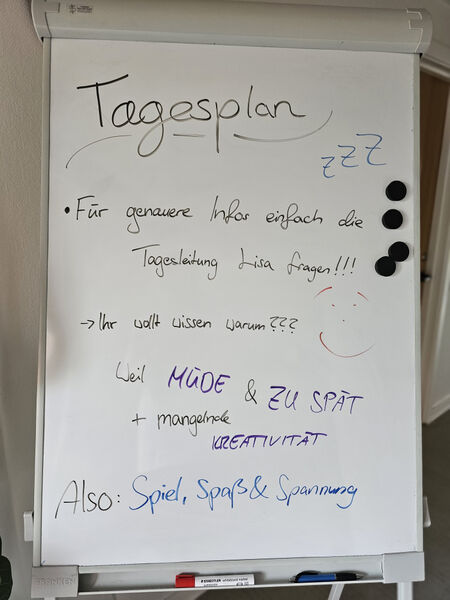 Tagesplan
z Z Z
• Für genauere Infos einfach die
Tagesleitung Lisa fragen!!!
→ Ihr wollt wissen warum???
Weil MÜDE & ZU SPÄT
+ mangelnde
KREATIVITÄT
Also: Spiel, Spaß & Spannung
FRANKEN
STAEDTLER